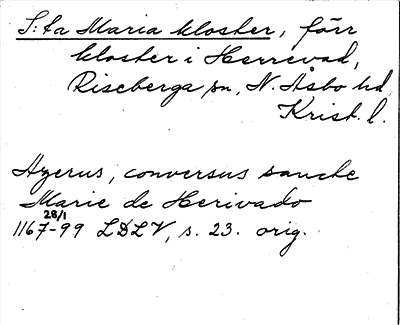 S:ta Maria kloster, förr
kloster i Herrevad,
Riseberga sn, N. Åsbo hd,
Krist. l.
Azerus, conversus sancte
Marie de Herivado
1167-99 28/1 LDLV, s. 23. orig.